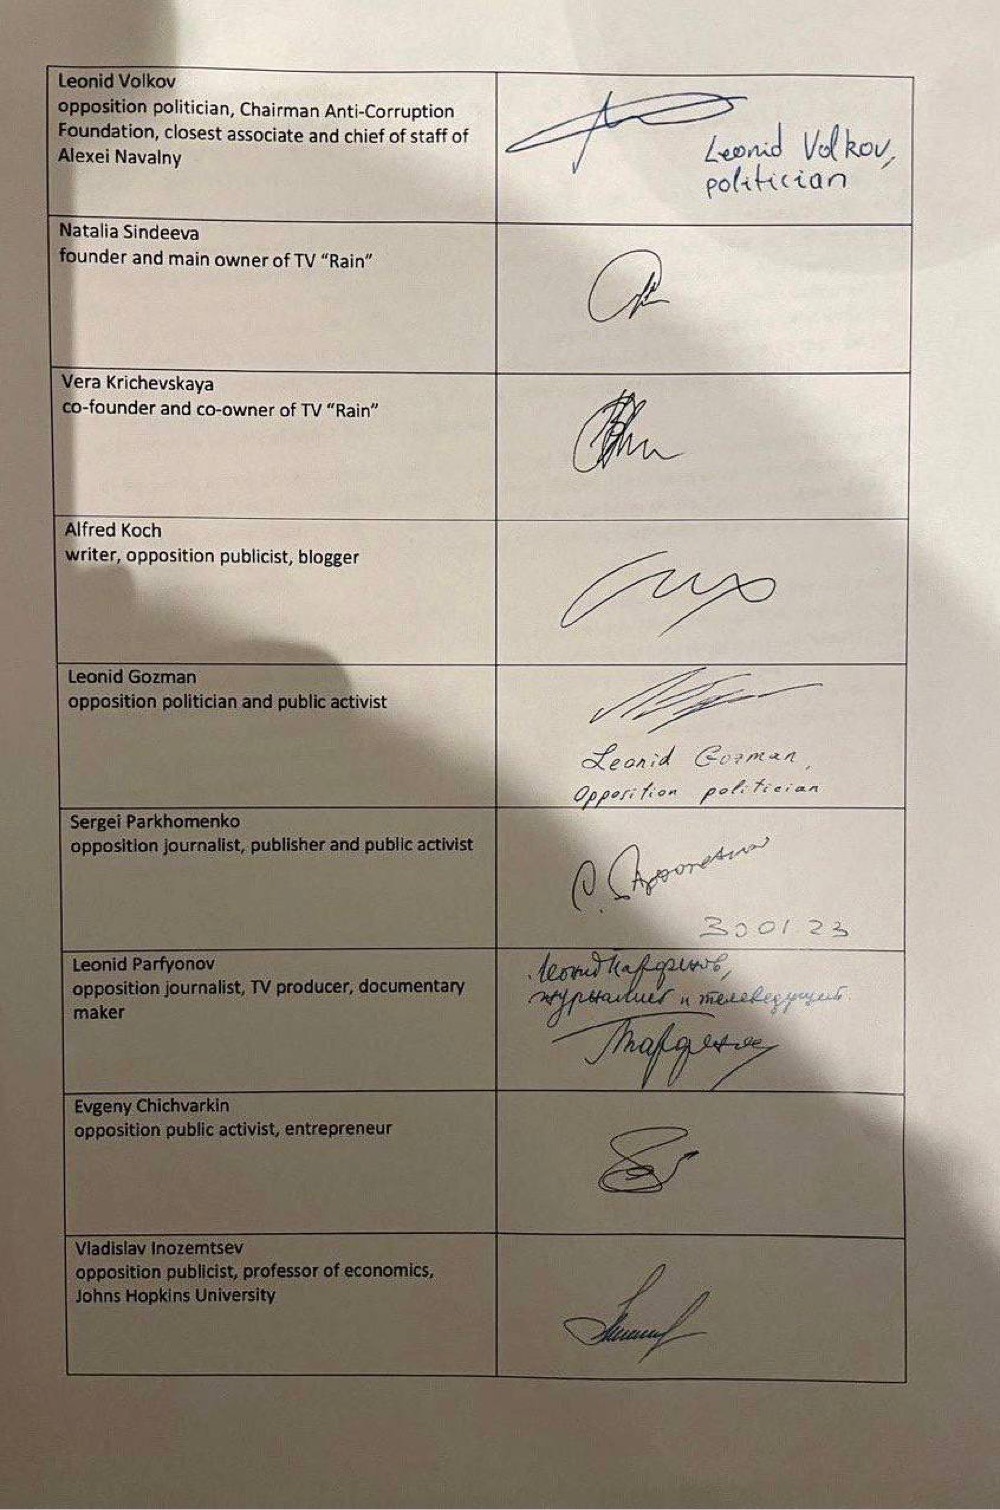 Leonid Volkov
opposition politician, Chairman Anti-Corruption
Foundation, closest associate and chief of staff of
Alexei Navalny
Leonid Volkov,
politician
Natalia Sindeeva
founder and main owner of TV “Rain”
Vera Krichevskaya
co-founder and co-owner of TV “Rain”
Alfred Koch
writer, opposition publicist, blogger
Leonid Gozman
opposition politician and public activist
Leonid Gozman,
Opposition politician
Sergei Parkhomenko
opposition journalist, publisher and public activist
30 01 23
Leonid Parfyonov
opposition journalist, TV producer, documentary
maker
Леонид Парфенов,
журналист и телеведущий.
Evgeny Chichvarkin
opposition public activist, entrepreneur
Vladislav Inozemtsev
opposition publicist, professor of economics,
Johns Hopkins University